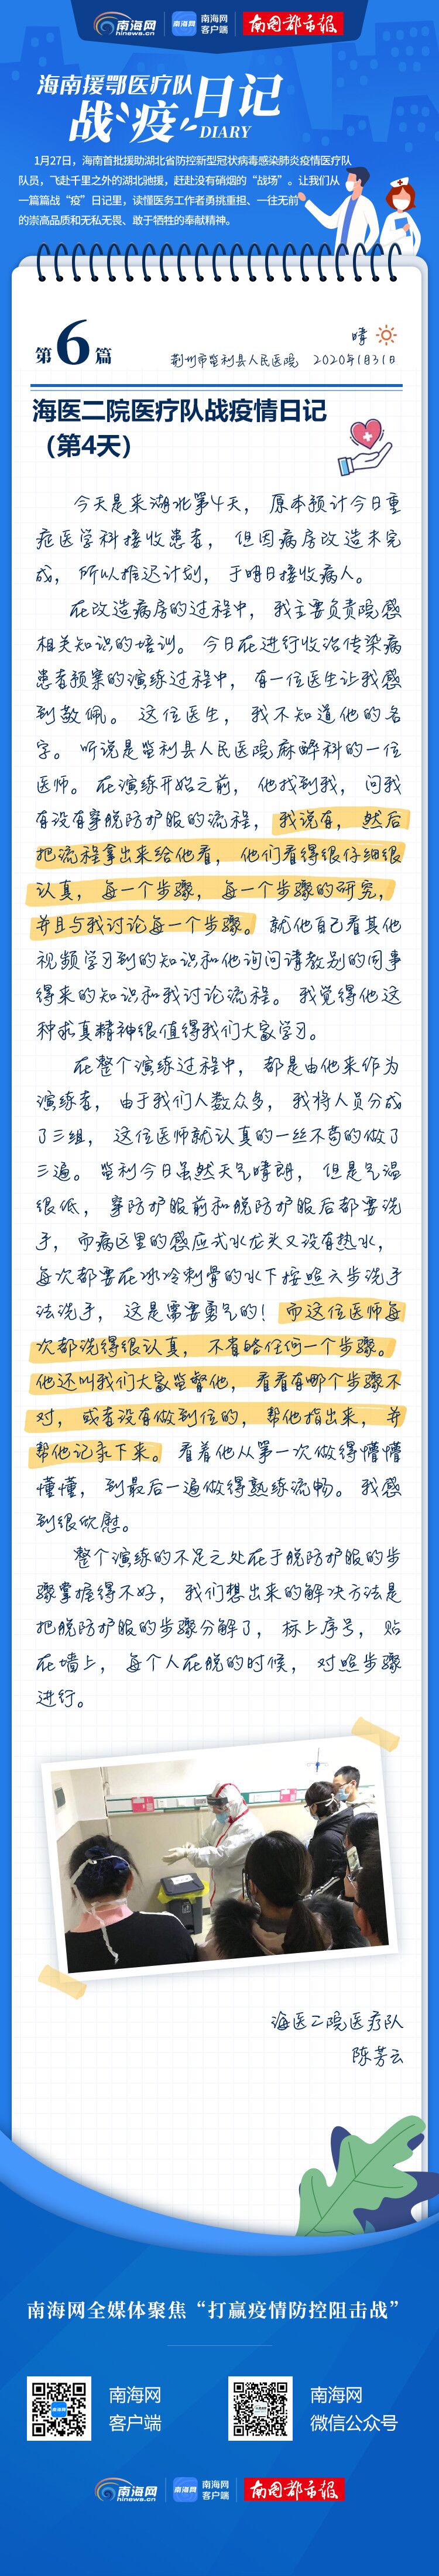 南海网
hinews.cn
南海网
南海网
客户端
南国都市报
海南援鄂医疗队
战“疫”日记
DIARY
1月27日，海南首批援助湖北省防控新型冠状病毒感染肺炎疫情医疗队
队员，飞赴千里之外的湖北驰援，赶赴没有硝烟的“战场”。让我们从
一篇篇战“疫”日记里，读懂医务工作者勇挑重担、一往无前
的崇高品质和无私无畏、敢于牺牲的奉献精神。
第6篇
晴
荆州市监利县人民医院 2020年1月31日
海医二院医疗队战疫情日记
（第4天）
今天是来湖北第4天，原本预计今日重
症医学科接收患者，但因病房改造未完
成，所以推迟计划，于明日接收病人。
在改造病房的过程中，我主要负责院感
相关知识的培训。今日在进行收治传染病
患者预案的演练过程中，有一位医生让我感
到敬佩。这位医生，我不知道他的名
字。听说是监利县人民医院麻醉科的一位
医师。在演练开始之前，他找到我，问我
有没有穿脱防护服的流程，我说有，然后
把流程拿出来给他看，他们看得很仔细很
认真，每一个步骤，每一个步骤的研究，
并且与我讨论每一个步骤。就他自己看其他
视频学习到的知识和他询问请教别的同事
得来的知识和我讨论流程。我觉得他这
种求真精神很值得我们大家学习。
在整个演练过程中，都是由他来作为
演练者，由于我们人数众多，我将人员分成
了三组，这位医师就认真的一丝不苟的做了
三遍。监利今日虽然天气晴朗，但是气温
很低，穿防护服前和脱防护服后都要洗
手，而病区里的感应式水龙头又没有热水，
每次都要在冰冷刺骨的水下按照六步洗手
法洗手，这是需要勇气的！而这位医师每
次都洗得很认真，不省略任何一个步骤。
他还叫我们大家监督他，看看有哪个步骤不
对，或者没有做到位的，帮他指出来，并
帮他记录下来。看着他从第一次做得懵懵
懂懂，到最后一遍做得熟练流畅。我感
到很欣慰。
整个演练的不足之处在于脱防护服的步
骤掌握得不好，我们想出来的解决方法是
把脱防护服的步骤分解了，标上序号，贴
在墙上，每个人在脱的时候，对照步骤
进行。
海医二院医疗队
陈芳云
南海网全媒体聚焦“打赢疫情防控阻击战”
南海网
客户端
南海网
微信公众号
南海网
hinews.cn
南海网
南海网
客户端
南国都市报